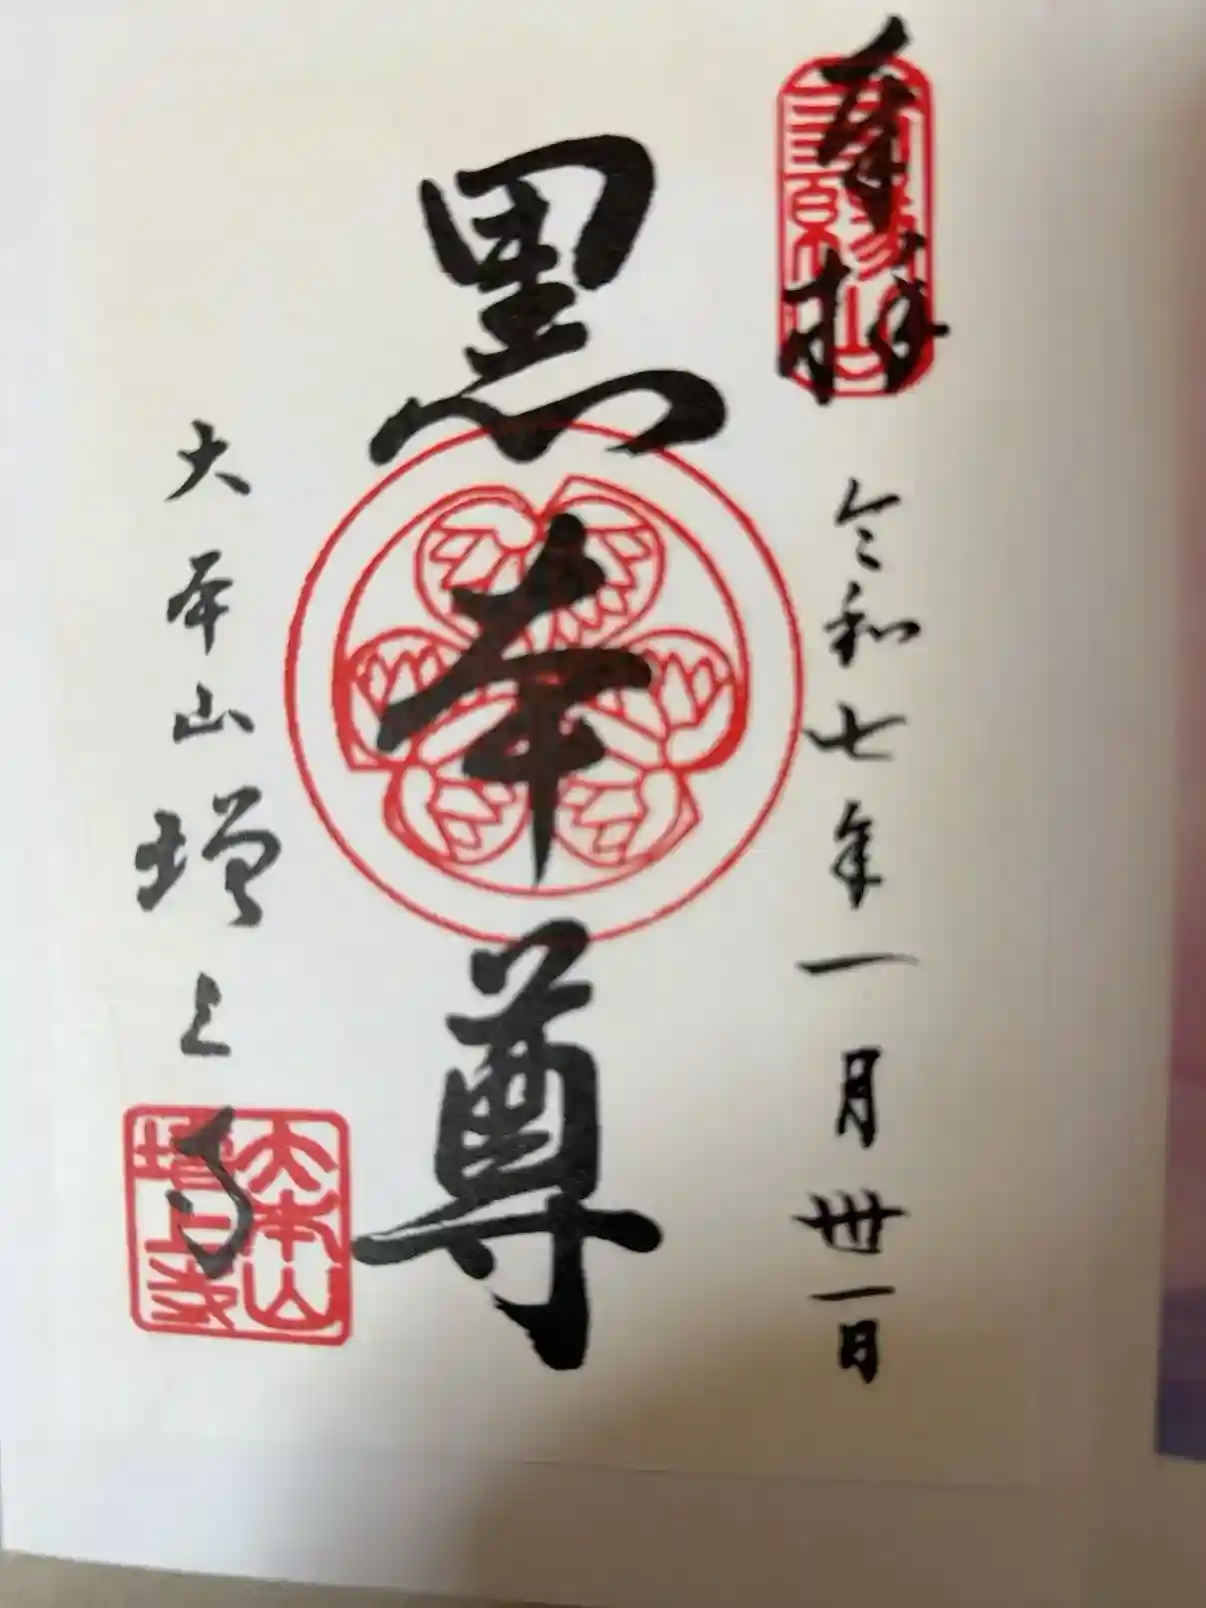 奉拝
三縁山
令和七年一月卅一日
黒本尊
大本山増上寺
大本山
増上寺